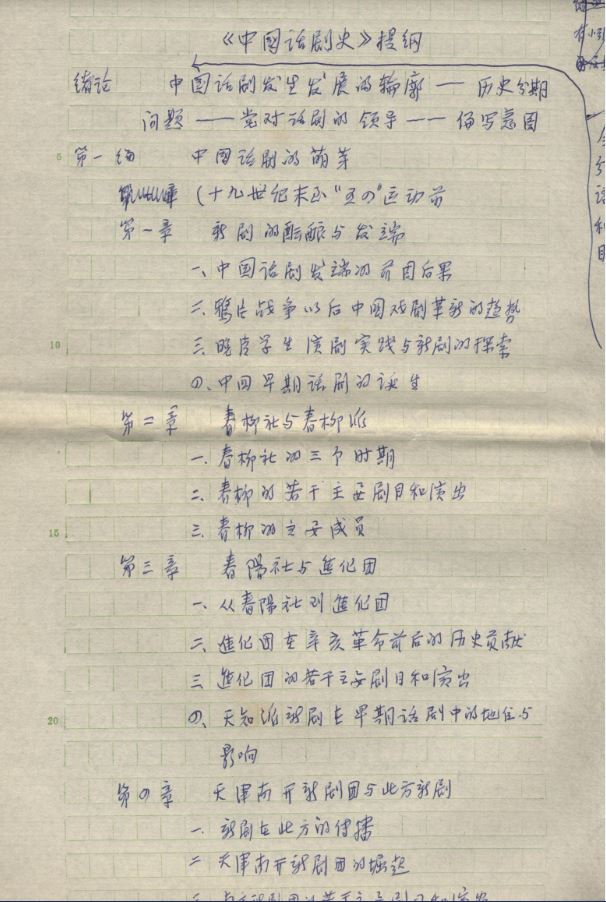 《中国话剧史》提纲
绪论 中国话剧发生发展的轮廓——历史分期
问题——党对话剧的领导——编写意图
5 第一编 中国话剧的萌芽
(十九世纪末至"五四"运动前
第一章 新剧的酝酿与发端
一、中国话剧发端的前因后果
二、鸦片战争以后中国戏剧革新的趋势
10 三、晚清学生演剧实践与新剧的探索
四、中国早期话剧的诞生
第二章 春柳社与春柳派
一、春柳社的三个时期
二、春柳的若干主要剧目和演出
15 三、春柳的主要成员
第三章 春陽社与進化团
一、从春陽社到進化团
二、進化团在辛亥革命前后的历史贡献
三、進化团的若干主要剧目和演出
20 四、天知派新剧在早期话剧中的地位与
影响
第四章 天津南开新剧团与北方新剧
一、新剧在北方的传播
二、天津南开新剧团的崛起